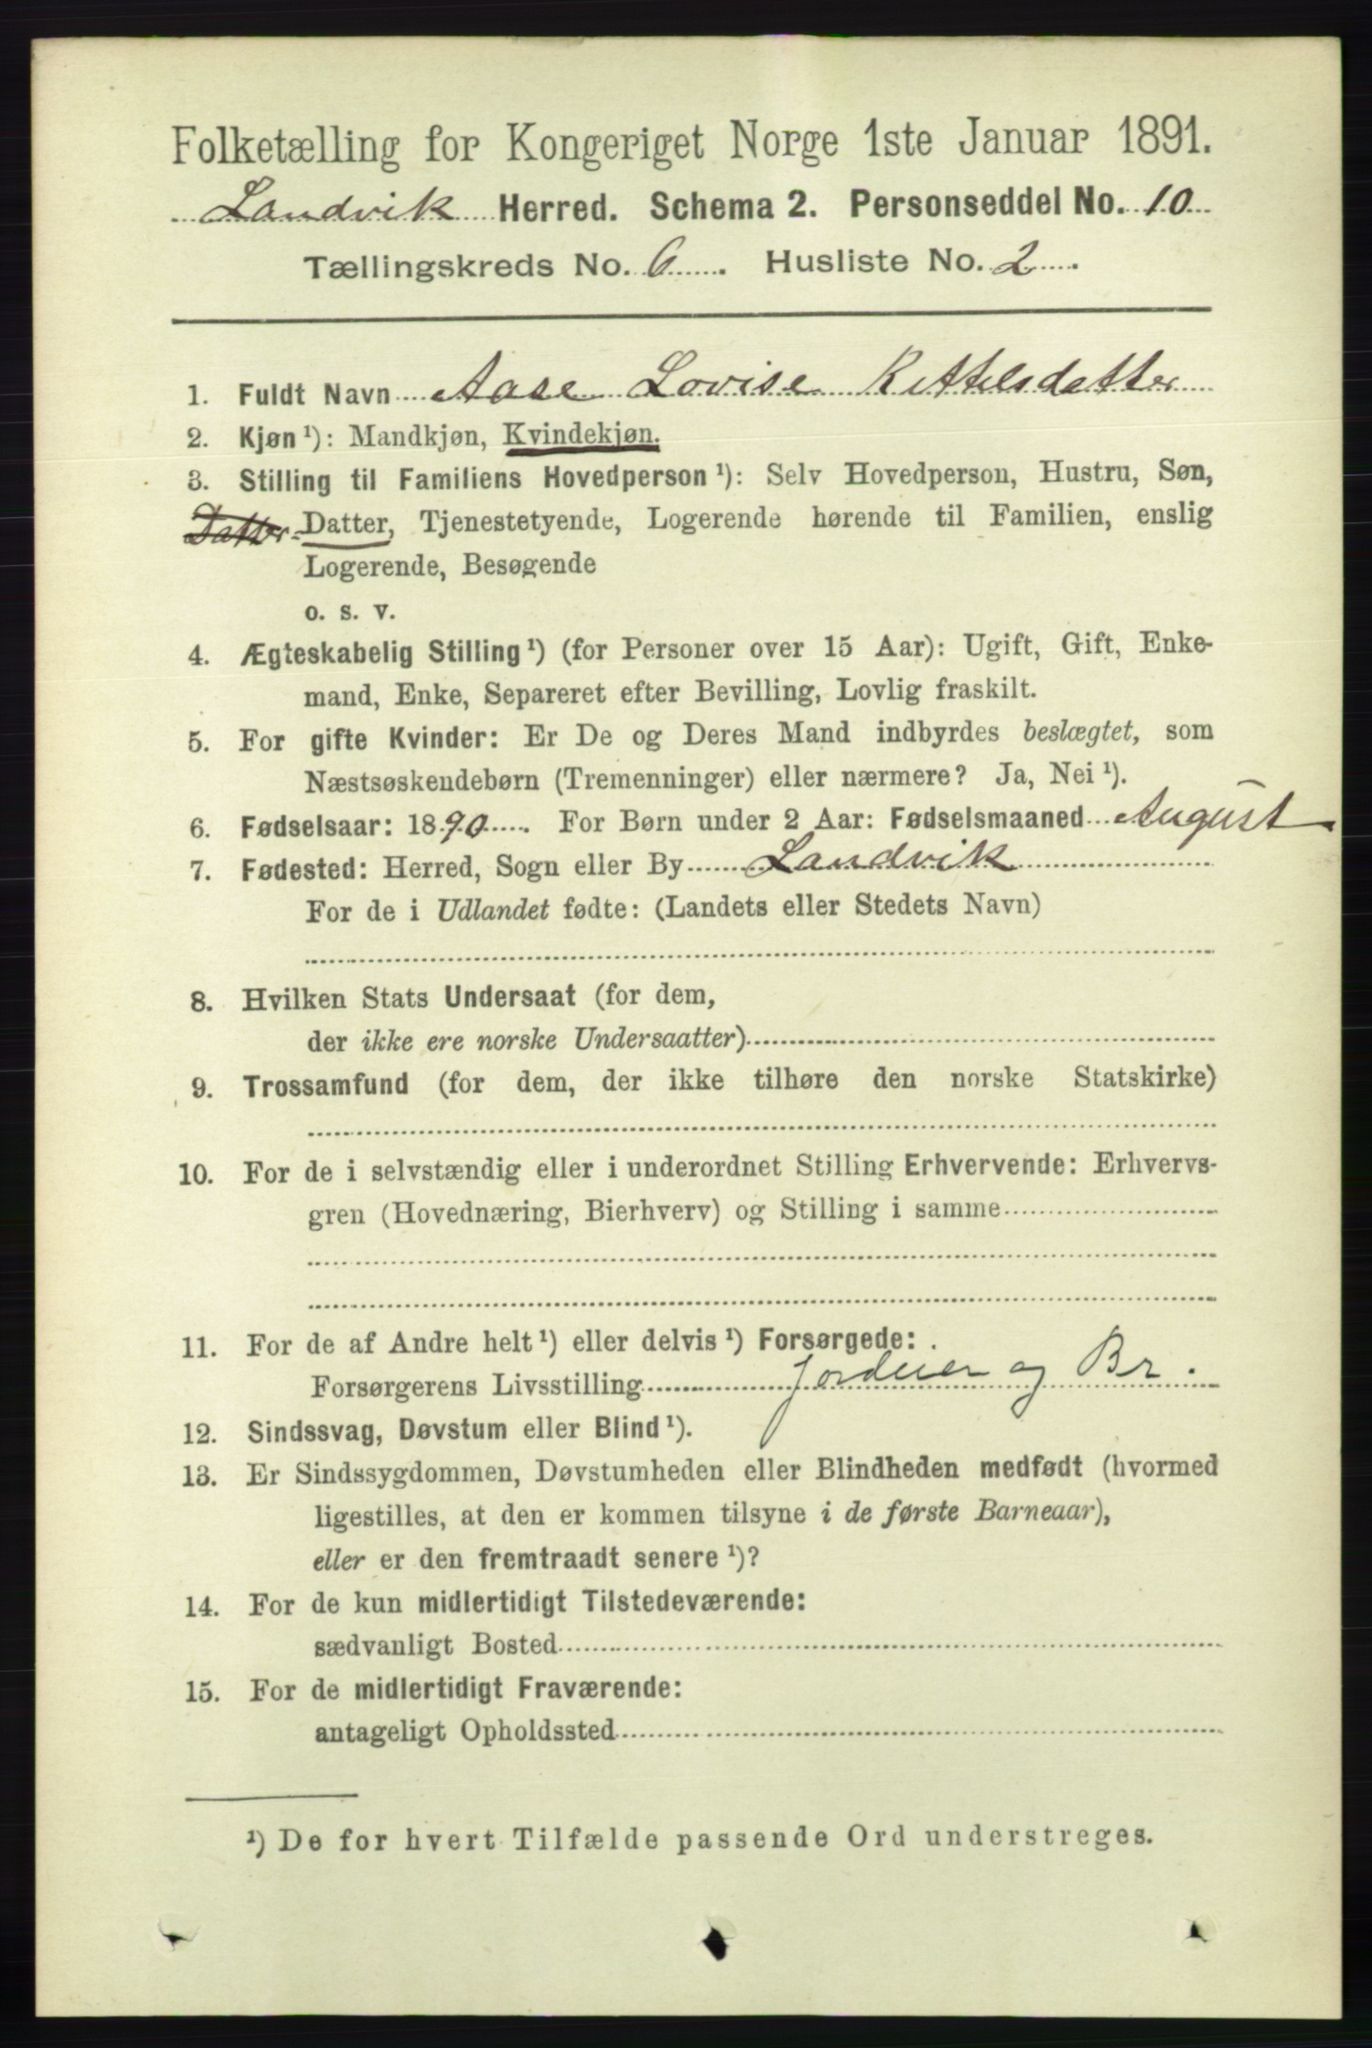 Folketælling for Kongeriget Norge 1ste Januar 1891.
Landvik Herred. Schema 2. Personseddel No. 10
Tællingskreds No. 6. Husliste No. 2.
1. Fuldt Navn Aase Lovise Kettelsdatter
2. Kjøn¹): Mandkjøn, Kvindekjøn.
3. Stilling til Familiens Hovedperson¹): Selv Hovedperson, Hustru, Søn,
Datter Datter, Tjenestetyende, Logerende hørende til Familien, enslig
Logerende, Besøgende
o. s. v.
4. Ægteskabelig Stilling¹) (for Personer over 15 Aar): Ugift, Gift, Enke-
mand, Enke, Separeret efter Bevilling, Lovlig fraskilt.
5. For gifte Kvinder: Er De og Deres Mand indbyrdes beslægtet, som
Næstsøskendebørn (Tremenninger) eller nærmere? Ja, Nei¹).
6. Fødselsaar: 1890. For Børn under 2 Aar: Fødselsmaaned August
7. Fødested: Herred, Sogn eller By Landvik
For de i Udlandet fødte: (Landets eller Stedets Navn)
8. Hvilken Stats Undersaat (for dem,
der ikke ere norske Undersaatter)
9. Trossamfund (for dem, der ikke tilhøre den norske Statskirke)
10. For de i selvstændig eller i underordnet Stilling Erhvervende: Erhvervs-
gren (Hovednæring, Bierhverv) og Stilling i samme
11. For de af Andre helt¹) eller delvis¹) Forsørgede:
Forsørgerens Livsstilling Jordeier og Br.
12. Sindssvag, Døvstum eller Blind¹).
13. Er Sindssygdommen, Døvstumheden eller Blindheden medfødt (hvormed
ligestilles, at den er kommen tilsyne i de første Barneaar),
eller er den fremtraadt senere¹)?
14. For de kun midlertidigt Tilstedeværende:
sædvanligt Bosted
15. For de midlertidigt Fraværende:
antageligt Opholdssted
¹) De for hvert Tilfælde passende Ord understreges.